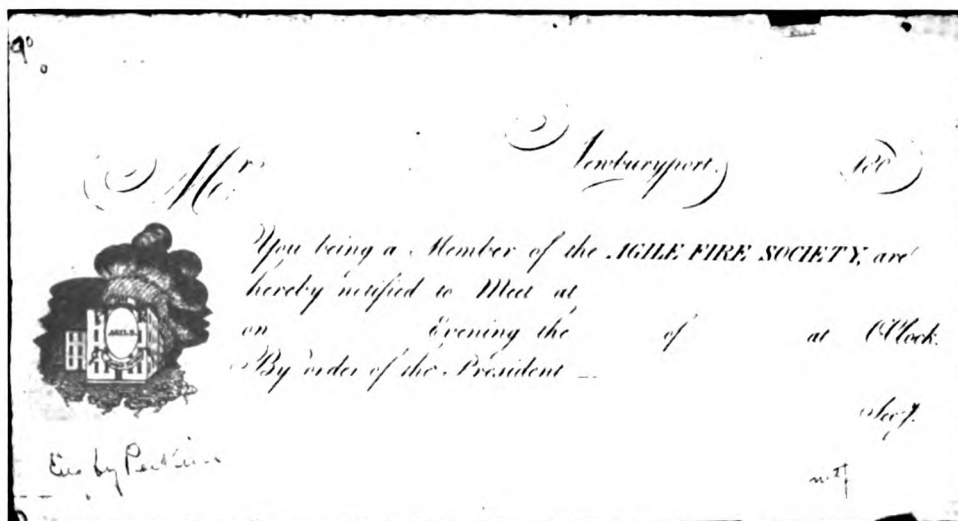 Mr. Newburyport. 180
You being a Member of the AGILE FIRE SOCIETY, are
hereby notified to Meet at
on Evening the of at O'Clock.
By order of the President
Sec'y.
AGILE
Eng by Perkins